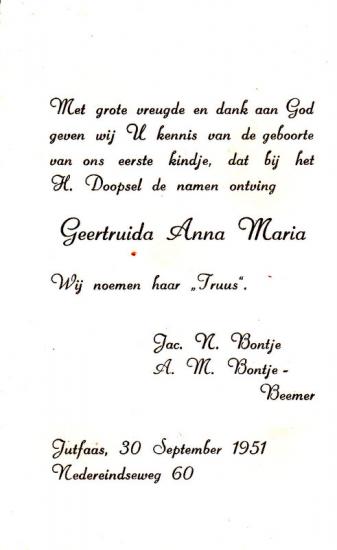 Met grote vreugde en dank aan God
geven wij U kennis van de geboorte
van ons eerste kindje, dat bij het
H. Doopsel de namen ontving
Geertruida Anna Maria
Wij noemen haar „Truus".
Jac. N. Bontje
A. M. Bontje -
Beemer
Jutfaas, 30 September 1951
Nedereindseweg 60